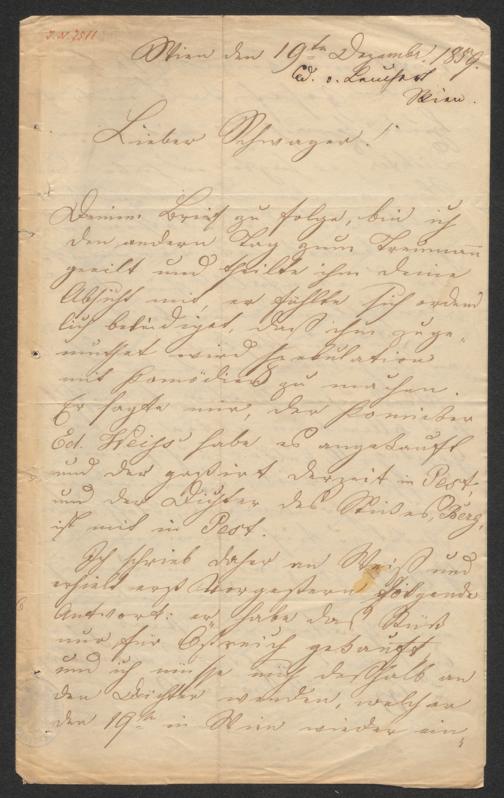 J.N. 7511
Wien den 19ten Dezember. 1859.
Ed. v. Lauchert
Wien.
Lieber Schwager!
Deinem Brief zu folge, bin ich
den andern Tag zum Treumann
geeilt und theilte ihm deine
Absicht mit, er fühlte sich ordent
lich beleidiget, daß ihm zuge-
muthet wird Speculation
mit Komödien zu machen.
Er sagte mir, der Komiker
Ed. Weiss habe es angekauft
und der gastirt derzeit in Pest,
und der Dichter des Stückes, Berg,
ist mit in Pest.
Ich schrieb daher an Weiß und
erhielt erst vorgestern folgende
Antwort: er habe das Stück
nur für Östreich gekauft,
und ich müsse mich deßhalb an
den Dichter wenden, welcher
den 19ten in Wien wieder ein-